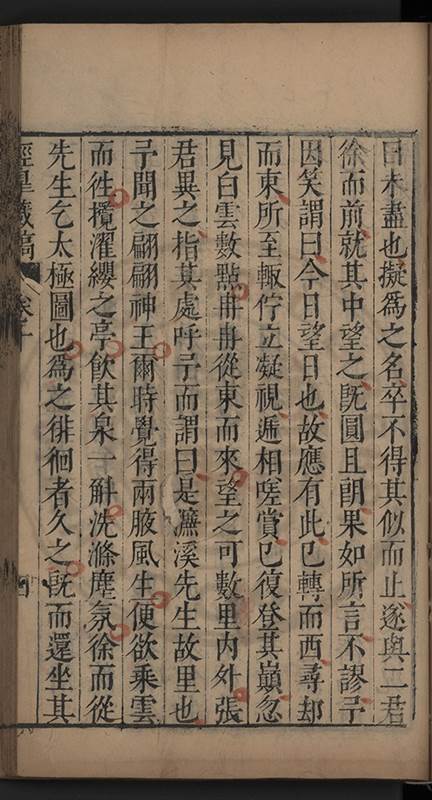 日未盡也擬爲之名卒不得其似而止遂與二君
徐而前就其中望之旣圓且朗果如所言不謬予
因笑謂曰今日望日也故應有此已轉而西尋却
而東所至輙佇立凝視遞相嗟賞已復登其巔忽
見白雲數點冉冉從東而來望之可數里內外張
君異之指其處呼予而謂曰是濂溪先生故里也
予聞之翩翩神王爾時覺得兩腋風生便欲乘雲
而徃攬濯纓之亭飲其泉一斛洗滌塵氛徐而從
先生乞太極圖也爲之徘徊者久之旣而還坐其
涇臯藏稿 卷十 四